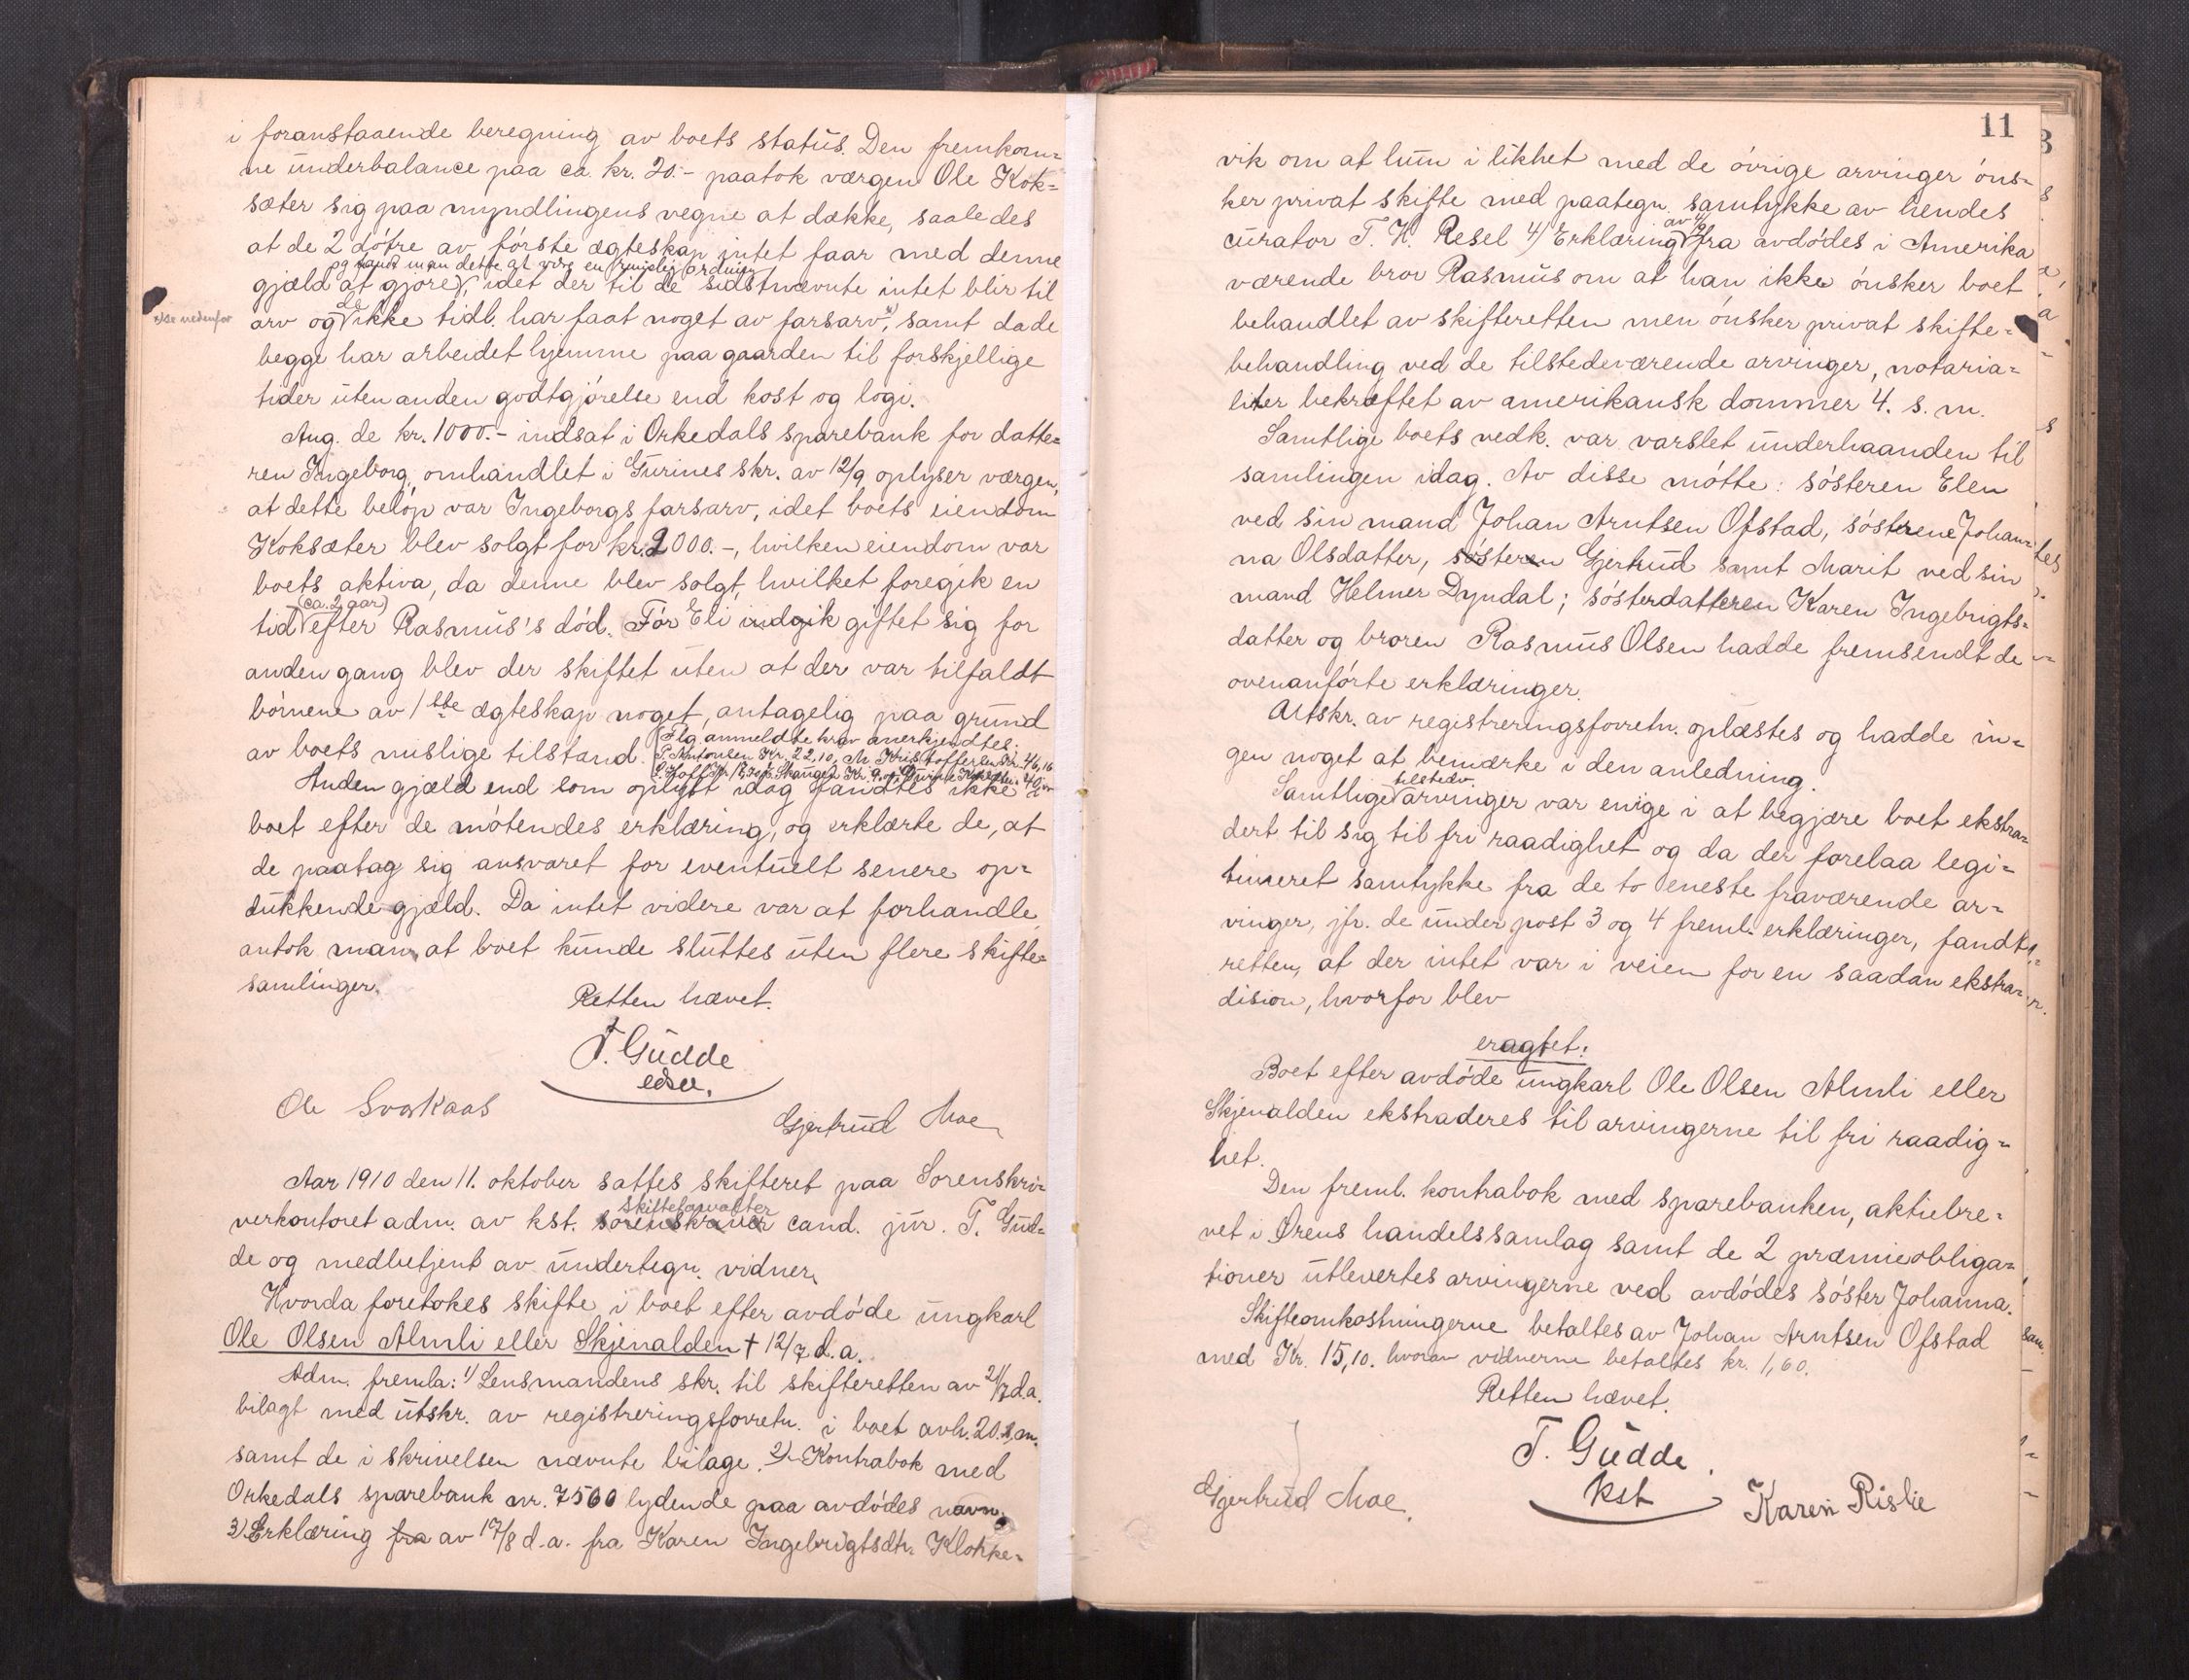 i foranstaaende beregning av boets status. Den fremkom=
ne underbalance paa ca. kr. 20.- paatok værgen Ole Kok=
sæter sig paa myndlingens vegne at dække, saaledes
at de 2 døtre av første ægteskap intet faar med denne
og fandt man dette at være en rimelig ordning
gjæld at gjøre, idet der til de sidstnævnte intet blir til
de
arv og ikke tidl. har faat noget av farsarv, samt da de
x/se nedenfor
begge har arbeidet hjemme paa gaarden til forskjellige
tider uten anden godtgjørelse end kost og logi.
Ang. de kr. 1000.- indsat i Orkedals sparebank for datte=
ren Ingeborg, omhandlet i Gurines skr. av 12/9 oplyser værgen,
at dette beløp var Ingeborgs farsarv, idet boets eiendom
Koksæter blev solgt for kr. 2000.-, hvilken eiendom var
boets aktiva, da denne blev solgt, hvilket foregik en
(ca. 2 aar)
tid efter Rasmus's død. Før Eli indgik giftet sig for
anden gang blev der skiftet uten at der var tilfaldt
børnene av 1ste ægteskap noget, antagelig paa grund
av boets uslige tilstand.
Flg. anmeldte krav anerkjendtes:
P. Antonsen Kr. 22,10, M Kristoffersen Kr. 46,16
Anden gjæld end som oplyst idag fandtes ikke i
boet efter de møtendes erklæring, og erklærte de, at
de paatag sig ansvaret for eventuelt senere op=
dukkende gjæld. Da intet videre var at forhandle
antok man, at boet kunde sluttes uten flere skifte=
samlinger.
Retten hævet.
T. Gudde
edsv.
Ole Svorkaas
Gjertrud Moe
Aar 1910 den 11. oktober sattes skifteret paa Sorenskri=
skifteforvalter
verkontoret adm. av kst. sorenskriver cand. jur. T. Gud=
de og medbetjent av undertegn. vidner.
Hvorda foretokes skifte i boet efter avdøde ungkarl
Ole Olsen Almli eller Skjenalden † 12/7 d.a.
Adm. fremla: 1) Lensmandens skr. til skifteretten av 21/7 d.a.
bilagt med utskr. av registreringsforretn. i boet avh. 20. s.m.
samt de i skrivelsen nævnte bilage. 2) Kontrabok med
Orkedals sparebank nr. 7560 lydende paa avdødes navn.
3) Erklæring fra av 17/8 d.a. fra Karen Ingebrigtsdtr. Klokke=
11
vik om at hun i likhet med de øvrige arvinger øns=
ker privat skifte med paategn. samtykke av hendes
curator T. H. Resel 4) Erklæring fra avdødes i Amerika
værende bror Rasmus om at han ikke ønsker boet
behandlet av skifteretten men ønsker privat skifte=
behandling ved de tilstedeværende arvinger, notaria=
liter bekræftet av amerikansk dommer 4. s. m.
Samtlige boets vedk. var varslet underhaanden til
samlingen idag. Av disse møtte: søsteren Elen
ved sin mand Johan Arntsen Ofstad, søstrene Johan=
na Olsdatter, søsteren Gjertrud samt Marit ved sin
mand Helmer Dyndal; søsterdatteren Karen Ingebrigts=
datter og broren Rasmus Olsen hadde fremsendt de
ovenanførte erklæringer.
Utskr. av registreringsforretn. oplæstes og hadde in=
gen noget at bemærke i den anledning.
tilstedv.
Samtlige arvinger var enige i at begjære boet ekstra=
dert til sig til fri raadighet og da der forelaa legi=
timeret samtykke fra de to eneste fraværende ar=
vinger, jfr. de under post 3 og 4 freml. erklæringer, fandt
retten, at der intet var i veien for en saadan ekstra=
dision, hvorfor blev
eragtet:
Boet efter avdøde ungkarl Ole Olsen Almli eller
Skjenalden ekstraderes til arvingerne til fri raadig=
het.
Den freml. kontrabok med sparebanken, aktiebre=
vet i Ørens handelssamlag samt de 2 præmieobliga=
tioner utlevertes arvingerne ved avdødes søster Johanna.
Skifteomkostningerne betaltes av Johan Arntsen Ofstad
med Kr. 15,10. hvorav vidnerne betaltes kr. 1,60.
Retten hævet.
T. Gudde
kst
Gjertrud Moe.
Karen Rislie